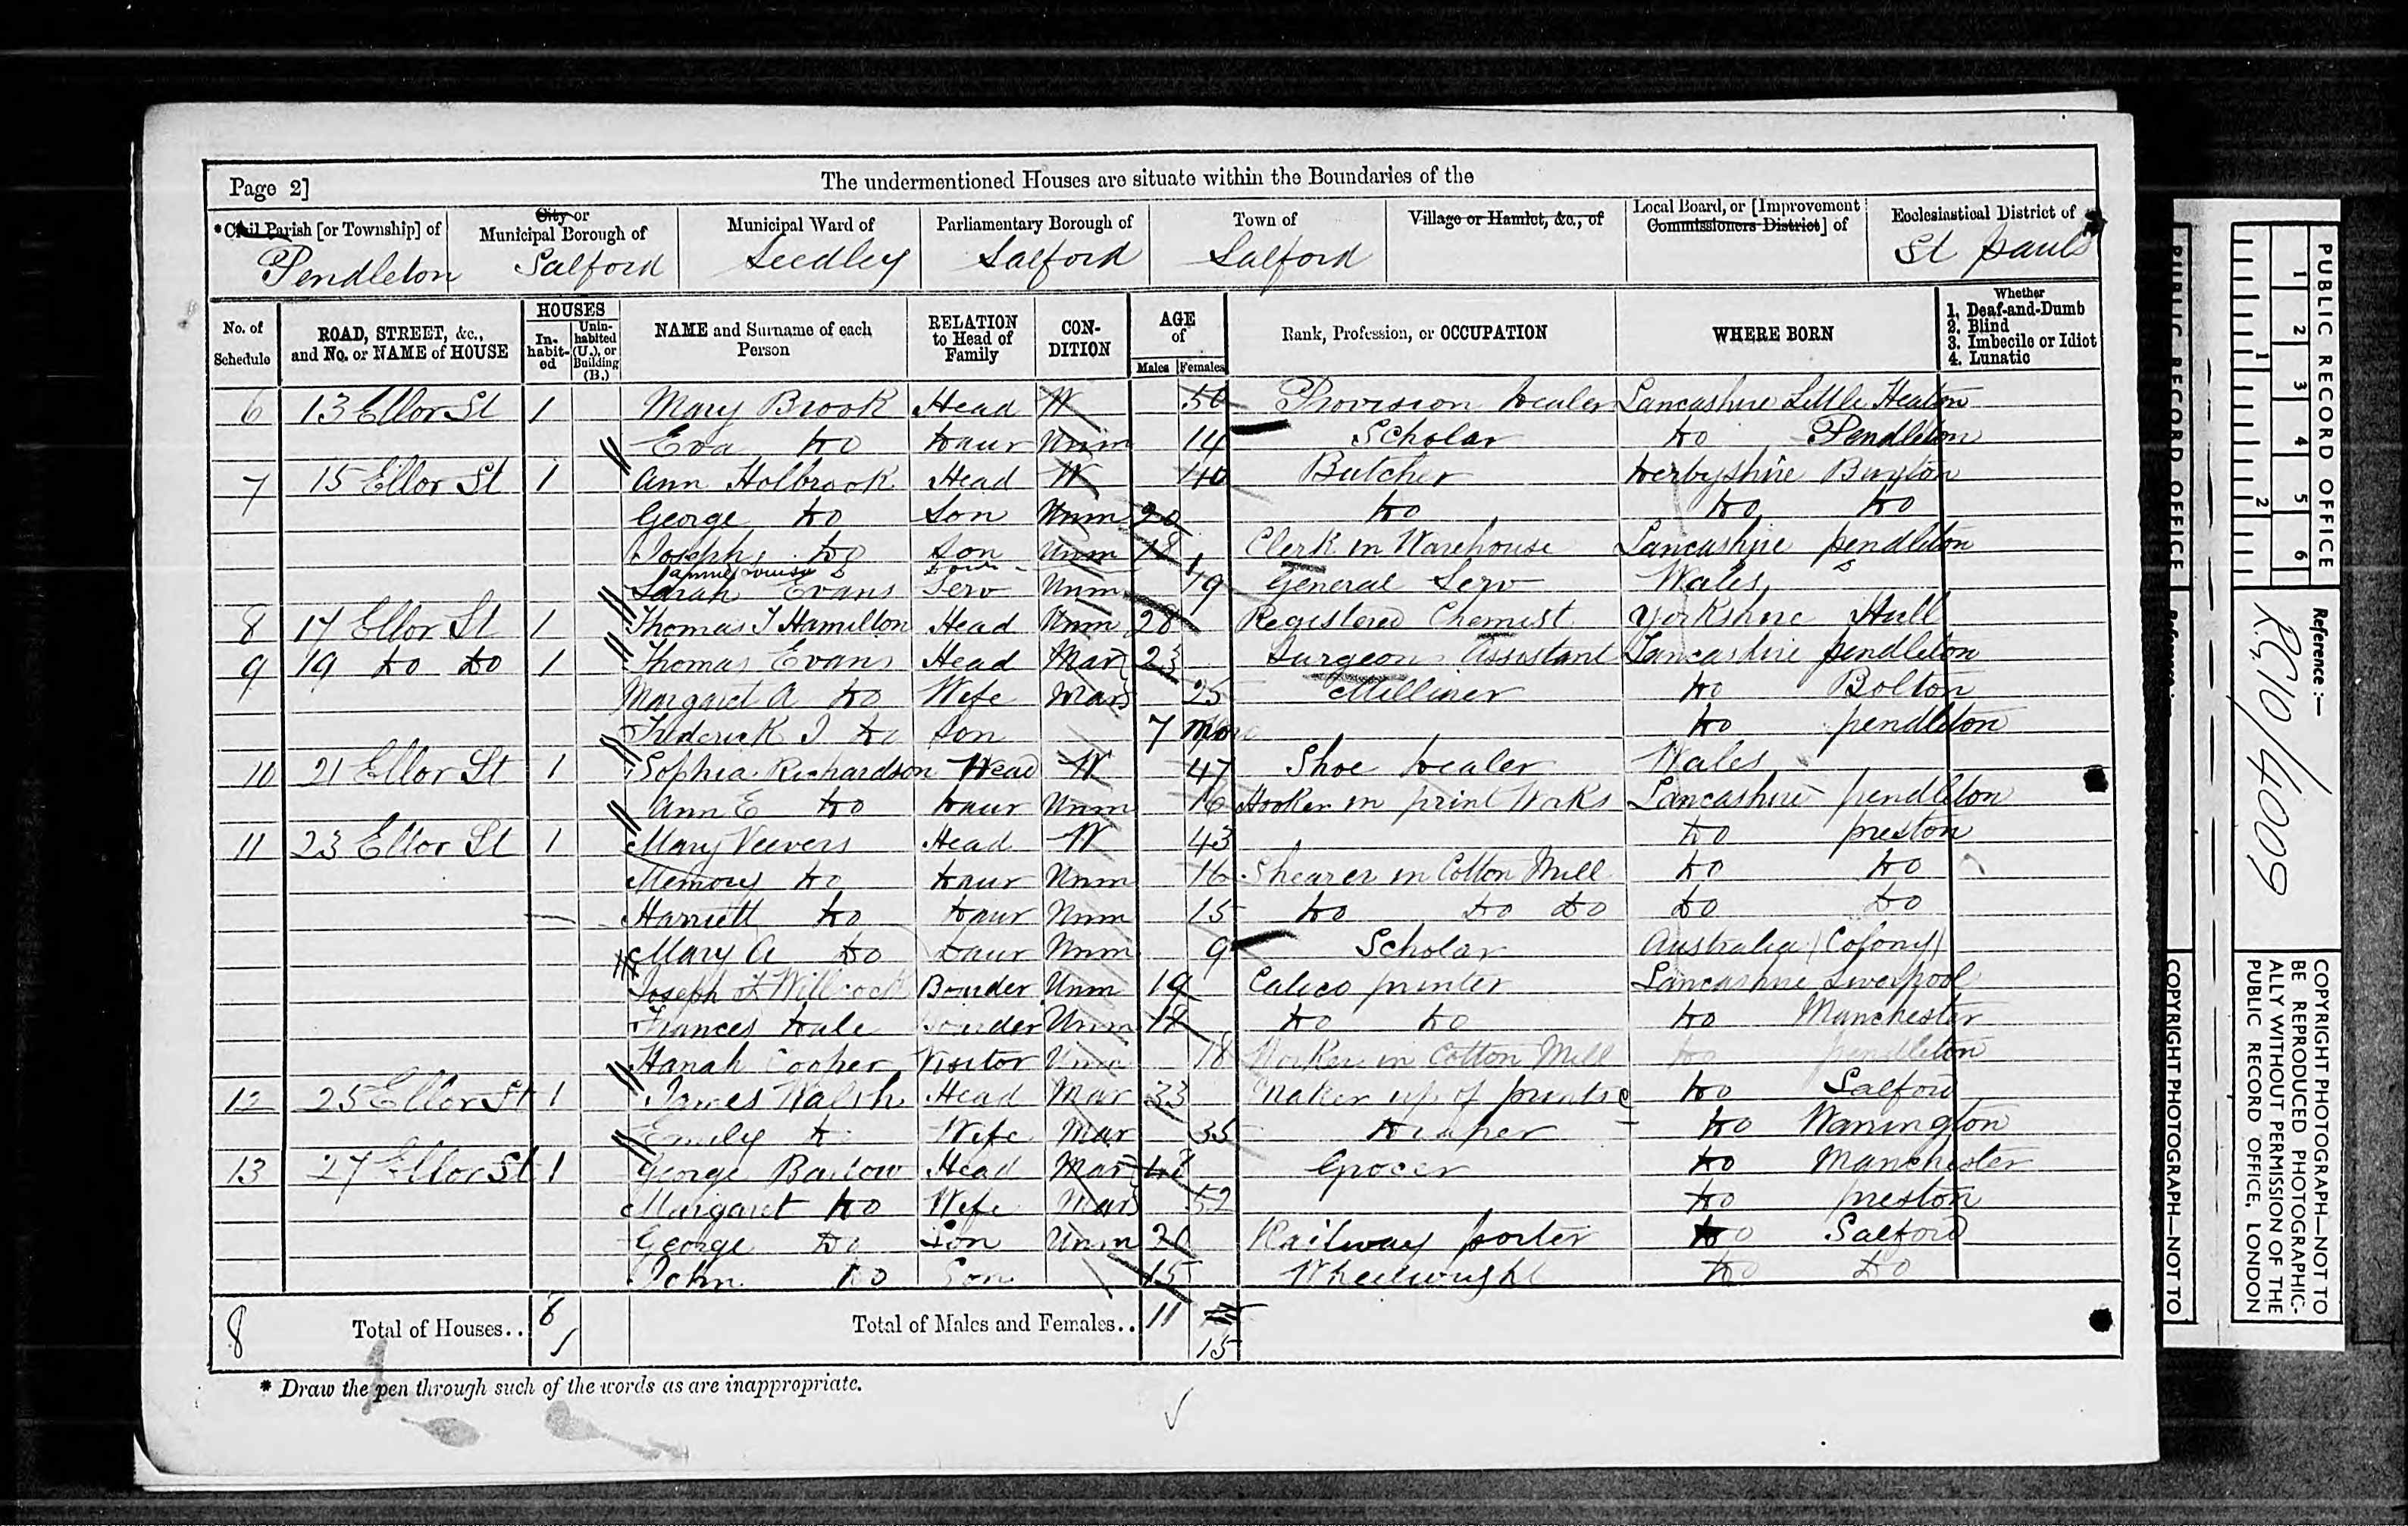 Page 2]
The undermentioned Houses are situate within the Boundaries of the
*Civil Parish [or Township] of
Pendleton
City or Municipal Borough of
Salford
Municipal Ward of
Seedley
Parliamentary Borough of
Salford
Town of
Salford
Village or Hamlet, &c., of
Local Board, or [Improvement Commissioners District] of
Ecclesiastical District of
St pauls
No. of Schedule
ROAD, STREET, &c., and No. or NAME of HOUSE
HOUSES
In-habit-ed
Unin-habited (U.), or Building (B.)
NAME and Surname of each Person
RELATION to Head of Family
CON-DITION
AGE of
Males Females
Rank, Profession, or OCCUPATION
WHERE BORN
Whether
1. Deaf-and-Dumb
2. Blind
3. Imbecile or Idiot
4. Lunatic
6 13 Ellor St 1 Mary Brook Head W 50 Provision Dealer Lancashire Little Heaton
Eva Do Daur Unm 14 Scholar Do Pendleton
7 15 Ellor St 1 Ann Holbrook Head W 40 Butcher Derbyshire Buxton
George Do Son Unm 20 Do Do Do
Joseph Do Son Unm 18 Clerk in Warehouse Lancashire pendleton
Sarah Evans Serv Unm 19 General Serv Wales
8 17 Ellor St 1 Thomas J Hamilton Head Unm 28 Registered Chemist Yorkshire Hull
9 19 Do Do 1 Thomas Evans Head Mar 23 Surgeons Assistant Lancashire pendleton
Margaret A Do Wife Mar 25 Milliner Do Bolton
Frederick J Do Son 7 mo Do pendleton
10 21 Ellor St 1 Sophia Richardson Head W 47 Shoe Dealer Wales
Ann E Do Daur Unm 16 Hooker in print Works Lancashire pendleton
11 23 Ellor St 1 Mary Veevers Head W 43 Do preston
Memory Do Daur Unm 16 Shearer in Cotton Mill Do Do
Harriett Do Daur Unm 15 Do Do Do Do Do
Mary A Do Daur Unm 9 Scholar Australia (Colony)
Joseph Willcock Boarder Unm 19 Calico printer Lancashire Liverpool
Frances Dale Boarder Unm 18 Do Do Do Manchester
Hanah Cooper Visitor Unm 18 Worker in Cotton Mill Do pendleton
12 25 Ellor St 1 James Walsh Head Mar 33 Maker up of prints Do Salford
Emily Do Wife Mar 35 Draper Do Warrington
13 27 Ellor St 1 George Barlow Head Mar Grocer Do Manchester
Margaret Do Wife Mar 52 Do preston
George Do Son Unm 20 Railway porter Do Salford
John Do Son 15 Wheelwright Do Do
8 Total of Houses.. 8 Total of Males and Females.. 11
15
* Draw the pen through such of the words as are inappropriate.
PUBLIC RECORD OFFICE
1 2 3 4 5 6
1 2
Reference :—
R.G.10/4009
COPYRIGHT PHOTOGRAPH—NOT TO BE REPRODUCED PHOTOGRAPHIC-ALLY WITHOUT PERMISSION OF THE PUBLIC RECORD OFFICE, LONDON
PUBLIC RECORD OFFICE
COPYRIGHT PHOTOGRAPH—NOT TO